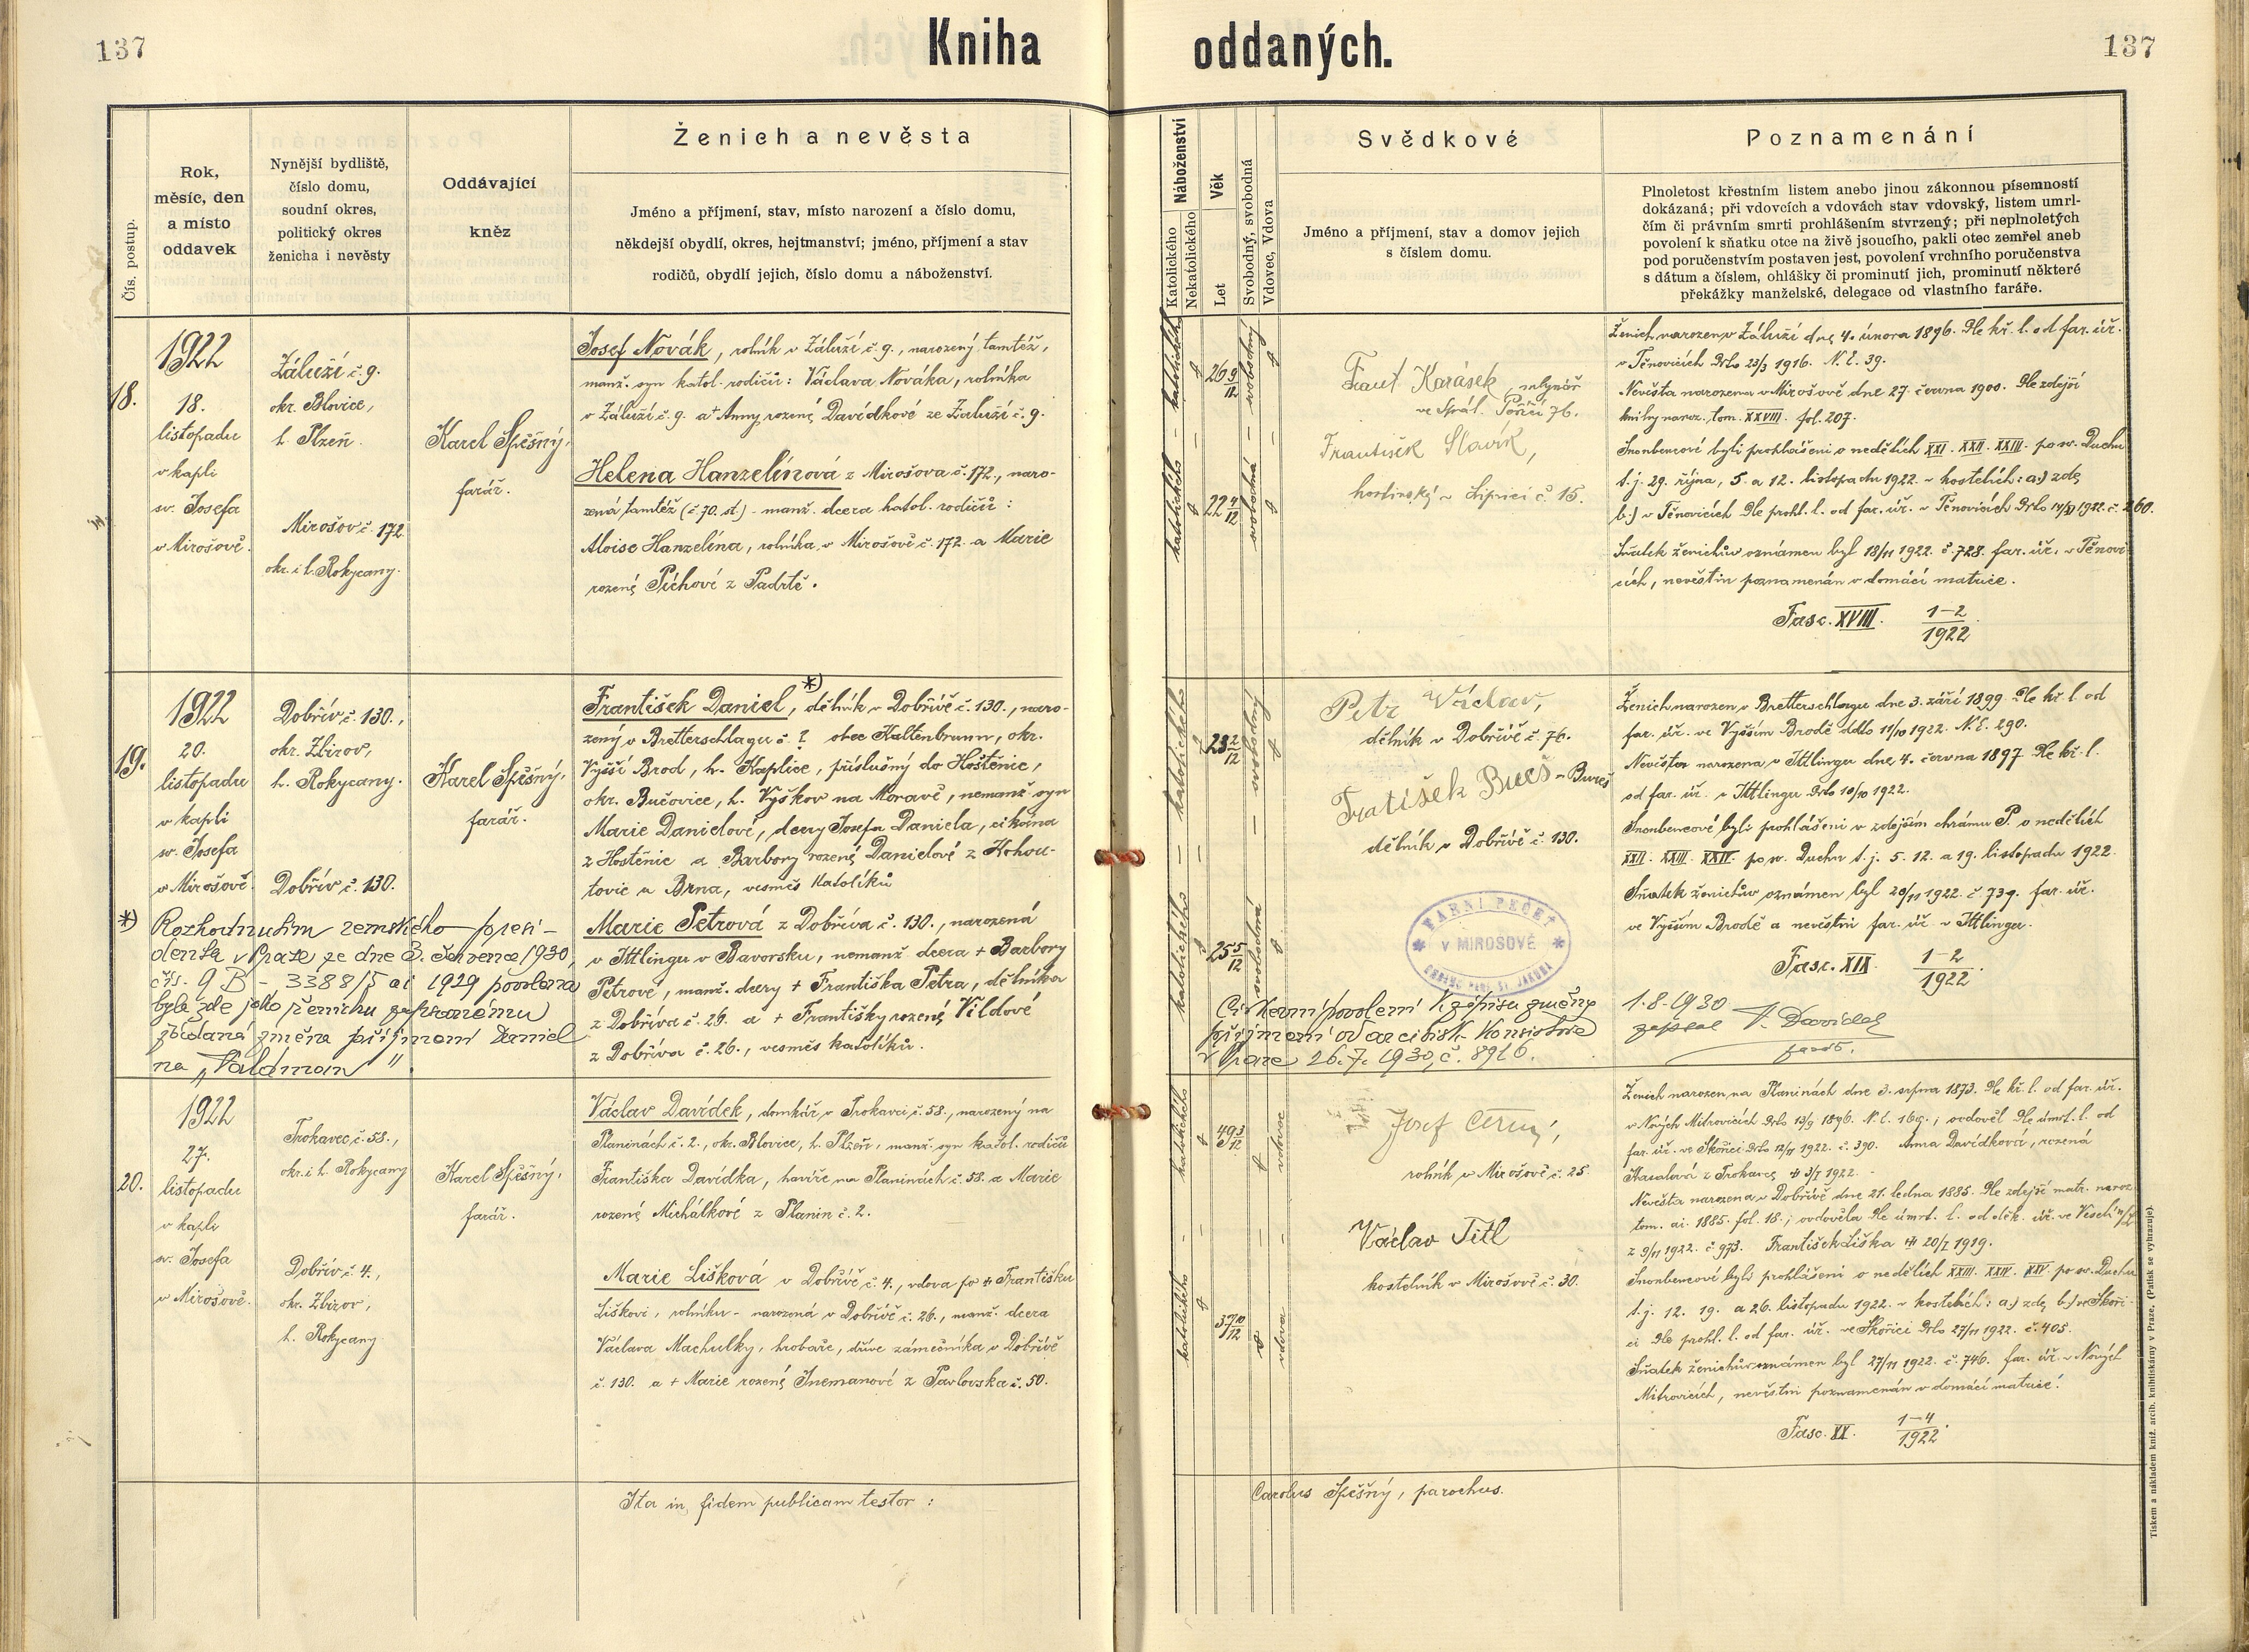 137
Kniha oddaných.
137
Čís. postup.
Rok,
měsíc, den
a místo
oddavek
Nynější bydliště,
číslo domu,
soudní okres,
politický okres
ženicha i nevěsty
Oddávající
kněz
Ženich a nevěsta
Jméno a příjmení, stav, místo narození a číslo domu,
někdejší obydlí, okres, hejtmanství; jméno, příjmení a stav
rodičů, obydlí jejich, číslo domu a náboženství.
Náboženství
Katolického
Nekatolického
Věk
Let
Svobodný, svobodná
Vdovec, Vdova
Svědkové
Jméno a příjmení, stav a domov jejich
s číslem domu.
Poznamenání
Plnoletost křestním listem anebo jinou zákonnou písemností
dokázaná; při vdovcích a vdovách stav vdovský, listem umrl-
čím či právním smrti prohlášením stvrzený; při neplnoletých
povolení k sňatku otce na živě jsoucího, pakli otec zemřel aneb
pod poručenstvím postaven jest, povolení vrchního poručenstva
s dátum a číslem, ohlášky či prominutí jich, prominutí některé
překážky manželské, delegace od vlastního faráře.
18.
1922
18.
listopadu
v kapli
sv. Josefa
v Mirošově.
Záluží č. 9.
okr. Blovice,
h. Plzeň.
Mirošov č. 172
okr. i h. Rokycany.
Karel Spěšný,
farář.
Josef Novák, rolník v Záluží č. 9., narozený tamtéž,
manž. syn katol. rodičů: Václava Nováka, rolníka
v Záluží č. 9. a + Anny rozené Davídkové ze Záluží č. 9.
Helena Hanzelínová z Mirošova č. 172., naro-
zená tamtéž (č. 70. st.) - manž. dcera katol. rodičů:
Aloise Hanzelína, rolníka v Mirošově č. 172. a Marie
rozené Píchové z Padrtě.
katolického
26 9/12
svobodný
katolického
22 4/12
svobodná
Frant Karásek, mlynář
ve Spál. Poříčí 76.
František Slavík,
hostinský v Lipnici č 15.
Ženich narozen v Záluží dne 4. února 1896. Dle kř. l. od far. úř.
v Těnovicích Ddto 23/3 1916. N. E. 39.
Nevěsta narozena v Mirošově dne 27. června 1900. Dle zdejší
knihy naroz. tom. XXVIII. fol. 207.
Snoubencové byli prohlášeni o nedělích XXI. XXII. XXIII. po sv. Duchu
t. j. 29. října, 5. a 12. listopadu 1922. v kostelích: a.) zde,
b.) v Těnovicích Dle prohl. l. od far. úř. v Těnovicích Ddto 14/XI 1922. č. 260.
Sňatek ženichův oznámen byl 18/11 1922. č. 728. far. úř. v Těnovi-
cích, nevěstin poznamenán v domácí matrice.
Fasc. XVIII. 1-2/1922.
19.
1922
20.
listopadu
v kapli
sv. Josefa
v Mirošově.
Dobřív č. 130.,
okr. Zbirov,
h. Rokycany.
Dobřív č. 130.
Karel Spěšný,
farář.
František Daniel,*) dělník v Dobřívě č. 130., naro-
zený v Bretterschlagu č. ? obec Kaltenbrunn, okr.
Vyšší Brod, h. Kaplice, příslušný do Hoštěnic,
okr. Bučovice, h. Vyškov na Moravě, nemanž. syn
Marie Danielové, dcery Josefa Daniela, cikána
z Hoštěnic a Barbory rozené Danielové z Hohou-
tovic u Brna, vesměs katolíků
Marie Petrová z Dobříva č. 130., narozená
v Ittlingu v Bavorsku, nemanž. dcera + Barbory
Petrové, manž. dcery + Františka Petra, dělníka
z Dobříva č. 26. a + Františky rozené Vildové
z Dobříva č. 26., vesměs katolíků.
*) Rozhodnutím zemského presi-
denta v Praze ze dne 3. července 1930,
čís. 9 B - 3388/5 ai 1929 povolena
byla zde jako ženichu zapsanému
žádaná změna příjmení Daniel
na „Valdman".
katolického
23 2/12
svobodný
katolického
25 5/12
svobodná
Petr Václav,
dělník v Dobřívě č. 76.
Fratišek Bueš - Bureš
dělník v Dobřívě č. 130.
FARNÍ PEČEŤ
V MIROŠOVĚ
Ženich narozen v Bretterschlagu dne 3. září 1899. Dle kř. l. od
far. úř. ve Vyšším Brodě ddto 11/10 1922. N. E. 290.
Nevěsta narozena v Ittlingu dne 4. června 1897. Dle kř. l.
od far. úř. v Ittlingu Ddto 10/10 1922.
Snoubencové byli prohlášeni v zdejším chrámu P. o nedělích
XXII. XXIII. XXIV. po sv. Duchu t. j. 5. 12. a 19. listopadu 1922.
Sňatek ženichův oznámen byl 20/11 1922. č 739. far. úř.
ve Vyšším Brodě a nevěstin far. úř. v Ittlingu.
Fasc. XIX. 1-2/1922.
Církevní povolení k zápisu změny
příjmení od arcibisk. konsistoře
v Praze 26. 7. 1930, č. 8916.
1.8.1930
zapsal V. Davídek
farář.
20.
1922
27.
listopadu
v kapli
sv. Josefa
v Mirošově.
Trokavec č. 58.,
okr. i h. Rokycany
Dobřív č. 4.,
okr. Zbirov,
h. Rokycany.
Karel Spěšný,
farář.
Václav Davídek, domkář v Trokavci č. 58., narozený na
Planinách č. 2., okr. Blovice, h. Plzeň, manž. syn katol. rodičů
Františka Davídka, havíře na Planinách č. 58. a Marie
rozené Michálkové z Planin č. 2.
Marie Lišková v Dobřívě č. 4., vdova po + Františku
Liškovi, rolníku - narozená v Dobřívě č. 26., manž. dcera
Václava Machulky, hrobaře, dříve zámečníka v Dobřívě
č. 130. a + Marie rozené Šnemanové z Pavlovska č. 50.
katolického
49 3/12
vdovec
katolického
37 10/12
vdova
Josef Černý,
rolník v Mirošově č. 25.
Václav Titl
kostelník v Mirošově č. 30.
Ženich narozen na Planinách dne 3. srpna 1873. Dle kř. l. od far. úř.
v Nových Mitrovicích Ddto 13/9 1896. N. E. 169.; ovdověl Dle úmrt. l. od
far. úř. ve Skořici Ddto 12/11 1922. č. 390. Anna Davídková, rozená
z Trokavce + 3/I 1922. -
Nevěsta narozena v Dobřívě dne 21. ledna 1885. Dle zdejší matr. naroz.
tom. ai. 1885. fol. 18.; ovdověla Dle úmrt. l. od děk. úř. ve Veselí n/L
z 9/11 1922. č 973. František Liška + 20/I 1919.
Snoubencové byli prohlášeni o nedělích XXIII. XXIV. XXV. po sv. Duchu
t. j. 12. 19. a 26. listopadu 1922. v kostelích: a.) zde, b.) ve Skoři-
ci Dle prohl. l. od far. úř. ve Skořici Ddto 27/11 1922. č. 405.
Sňatek ženichův oznámen byl 27/11 1922. č. 746. far. úř. v Nových
Mitrovicích, nevěstin poznamenán v domácí matrice.
Fasc. XX. 1-4/1922.
Ita in fidem publicam testor: Carolus Spěšný, parochus.
Tiskem a nákladem kníž. arcib. knihtiskárny v Praze. (Patisk se vyhrazuje).